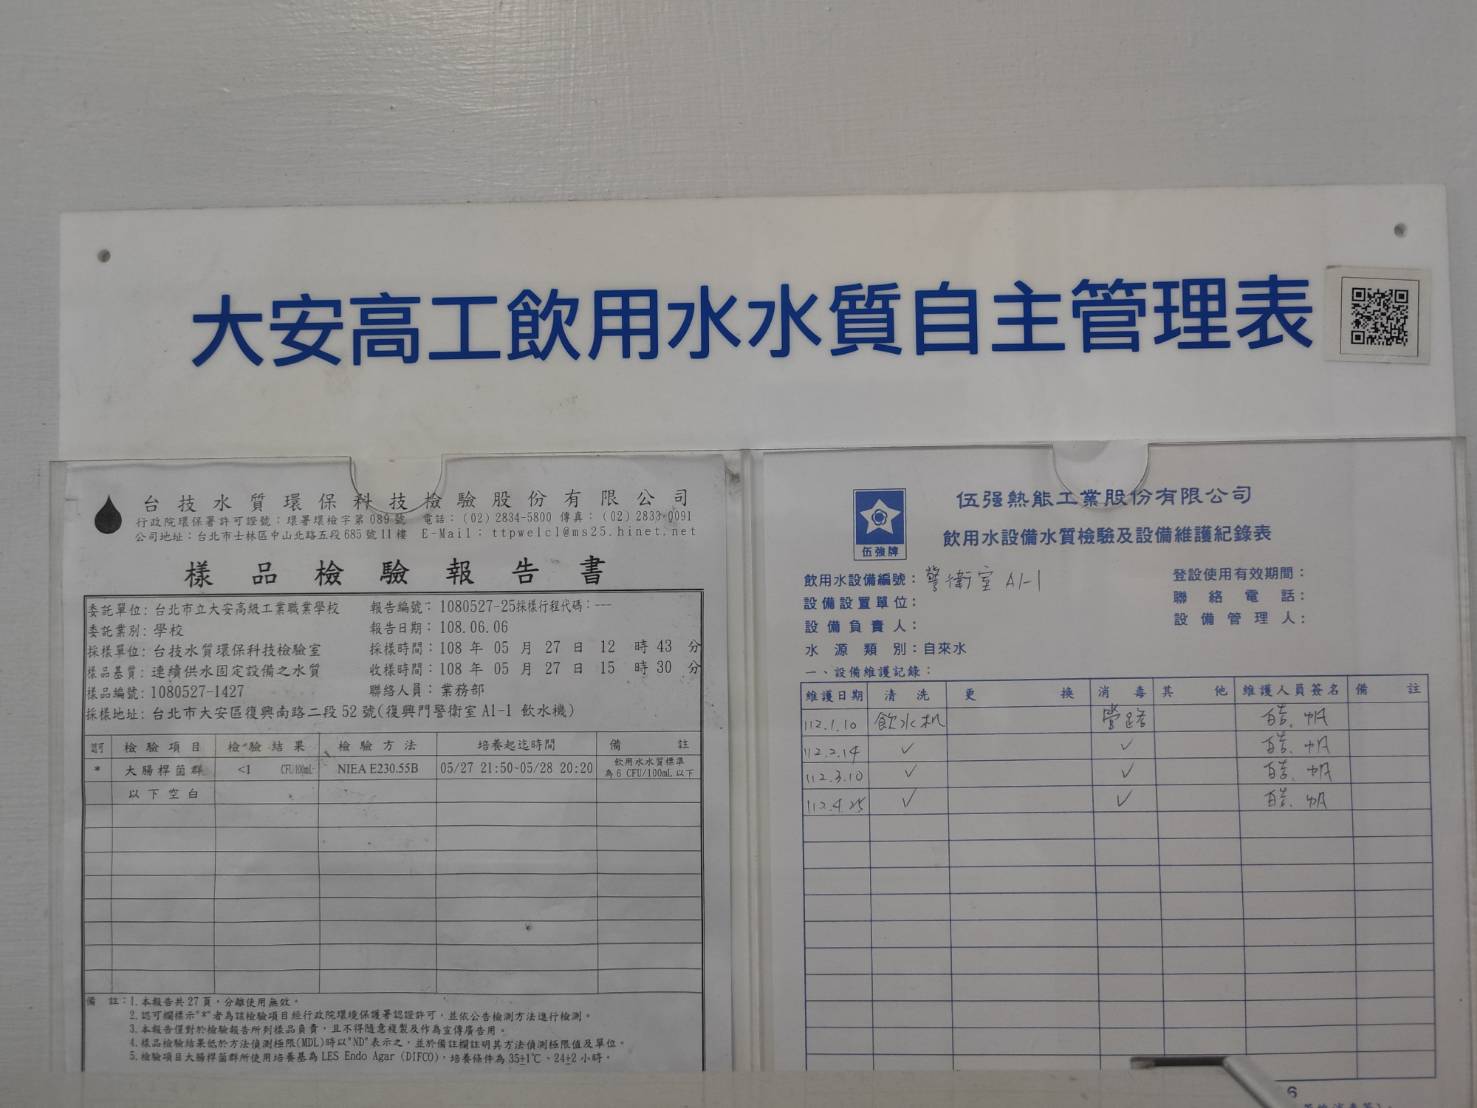 大安高工飲用水水質自主管理表
台技水質環保科技檢驗股份有限公司
行政院環保署許可證號：環署環檢字第089號 電話：(02) 2834-5800 傳真：(02) 2833-0091
公司地址：台北市士林區中山北路五段685號11樓 E-Mail：ttpwelcl@ms25.hinet.net
樣品檢驗報告書
委託單位：台北市立大安高級工業職業學校 報告編號：1080527-25採樣行程代碼：---
委託業別：學校 報告日期：108.06.06
採樣單位：台技水質環保科技檢驗室 採樣時間：108 年 05 月 27 日 12 時 43 分
樣品基質：連續供水固定設備之水質 收樣時間：108 年 05 月 27 日 15 時 30 分
樣品編號：1080527-1427 聯絡人員：業務部
採樣地址：台北市大安區復興南路二段52號(復興門警衛室A1-1 飲水機)
認可 檢驗項目 檢驗結果 檢驗方法 培養起迄時間 備註
* 大腸桿菌群 <1 CFU/100mL NIEA E230.55B 05/27 21:50~05/28 20:20 飲用水水質標準為6 CFU/100mL以下
以下空白
備註：1.本報告共27頁，分離使用無效。
2.認可欄標示"*"者為該檢驗項目經行政院環境保護署認證許可，並依公告檢測方法進行檢測。
3.本報告僅對於檢驗報告所列樣品負責，且不得隨意複製及作為宣傳廣告用。
4.樣品檢驗結果低於方法偵測極限(MDL)時以"ND"表示之，並於備註欄註明其方法偵測極限值及單位。
5.檢驗項目大腸桿菌群所使用培養基為LES Endo Agar (DIFCO)，培養條件為35±1℃、24±2小時。
伍強牌
伍强熱能工業股份有限公司
飲用水設備水質檢驗及設備維護紀錄表
飲用水設備編號：警衛室 A1-1 登設使用有效期間：
設備設置單位： 聯絡電話：
設備負責人： 設備管理人：
水源類別：自來水
一、設備維護記錄：
維護日期 清洗 更換 消毒 其他 維護人員簽名 備註
112.1.10 飲水机 管路
112.2.14 ✓ ✓
112.3.10 ✓ ✓
112.4.25 ✓ ✓
6